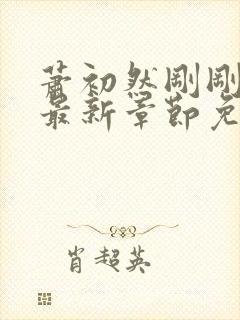 萧初然刚刚
最新章节免
肖超英